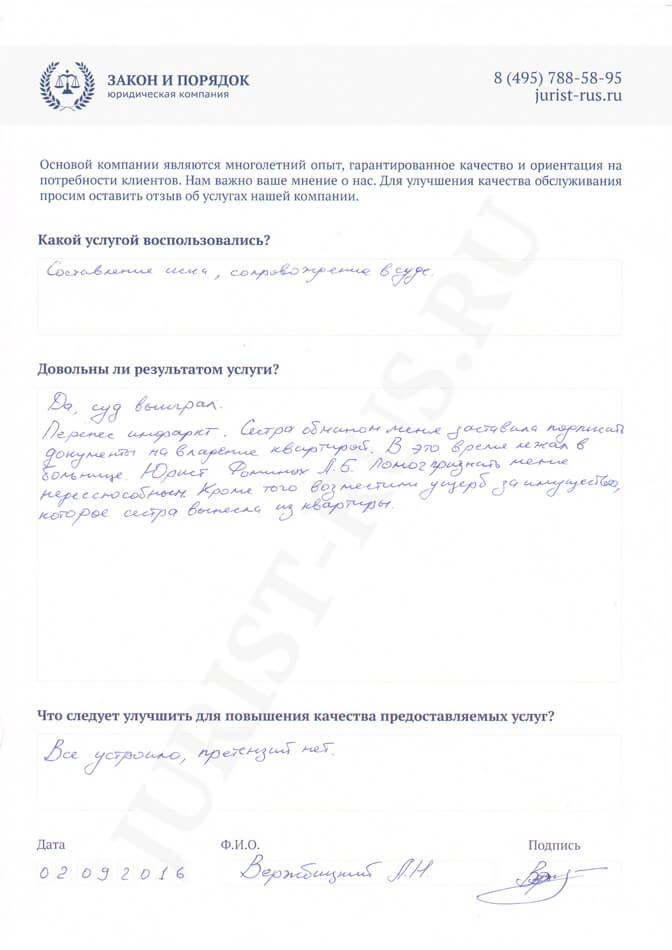 ЗАКОН И ПОРЯДОК
юридическая компания
8 (495) 788-58-95
jurist-rus.ru
Основой компании являются многолетний опыт, гарантированное качество и ориентация на
потребности клиентов. Нам важно ваше мнение о нас. Для улучшения качества обслуживания
просим оставить отзыв об услугах нашей компании.
Какой услугой воспользовались?
Составление иска, сопровождение в суде.
Довольны ли результатом услуги?
Да, суд выиграл.
Перенес инфаркт. Сестра обманом меня заставила подписать
документы на владение квартирой. В это время лежал в
больнице. Юрист Фоминых Л.Б. помог признать меня
Кроме того возместили ущерб за имущество,
которое сестра вынесла из квартиры.
JURIST-RUS.RU
Что следует улучшить для повышения качества предоставляемых услуг?
Все устроило, претензий нет.
Дата
Ф.И.О.
Подпись
02 09 2016
Вержбицкий Л.Н.